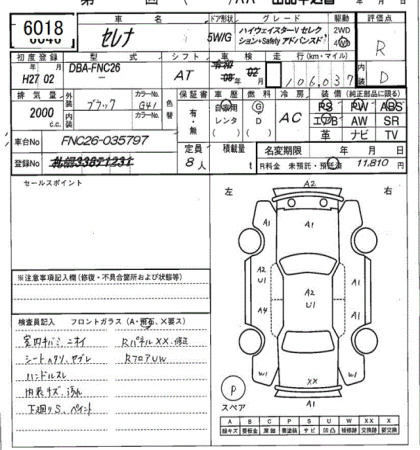 6018
車名 ドア形状 グレード 駆動 評価点
セレナ 5W/G ハイウェイスターV セレクション+Safety アドバンスド 2WD 4WD R
初度登録 型式 シフト 車検 走行(km・マイル) 内装
H27年 02月 DBA-FNC26 AT 106,037 D
排気量 外装 ブラック カラーNo. G41 色替 保証書 車歴 燃料 冷房 装備(純正部品に限る)
2000 c.c. カラーNo. 有・無 自家用 レンタ G D AC PS PW ABS
エアB AW SR
革 ナビ TV
車台No FNC26-035797 定員 積載量 名変期限 年 月 日
登録No 8人 t R料金 未預託・預託済 11,810
セールスポイント
左 右
A2
A1 A1
A1
A2 A2
U1 U1
A4 A1
W1 W1
XX
※注意事項記入欄(修復・不具合箇所および状態等)
検査員記入 フロントガラス(A・飛石、X要ス)
室内キバミ ニオイ RパネルXX、修正
シートヘタリ、ヤブレ RフロアUW
ハンドルスレ
内装キズ、汚れ
下廻りS、ペイント
P
スペア
A B C P S U W X XX
線キズ 要板金 腐食 要塗装 サビ 凹凸 補修跡 交換跡 要交換